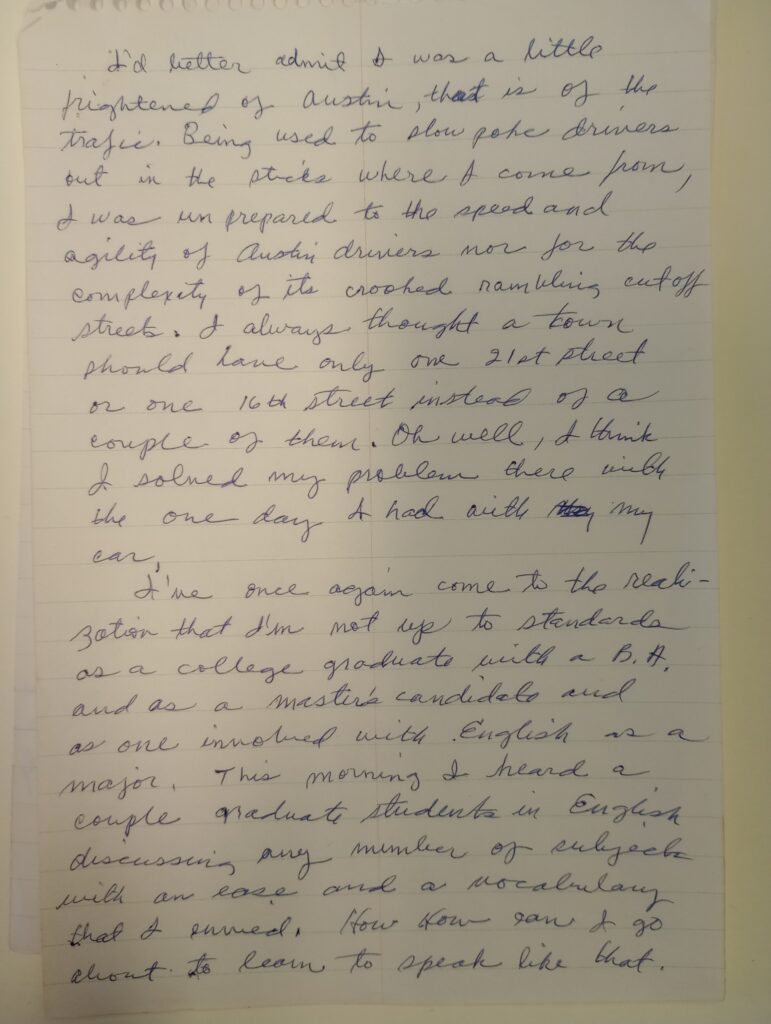 I'd better admit I was a little
frightened of Austin, that is of the
trafic. Being used to slow poke drivers
out in the sticks where I come from,
I was un prepared to the speed and
agility of Austin drivers nor for the
complexity of its crooked rambling cutoff
streets. I always thought a town
should have only one 21st street
or one 16th street instead of a
couple of them. Oh well, I think
I solved my problem there with
the one day I had with my
car,
I've once again come to the reali-
zation that I'm not up to standards
as a college graduate with a B.A.
and as a master's candidate and
as one involved with English as a
major. This morning I heard a
couple graduate students in English
discussing any number of subjects
with an ease and a vocabulary
that I envied. How How can I go
about to learn to speak like that.